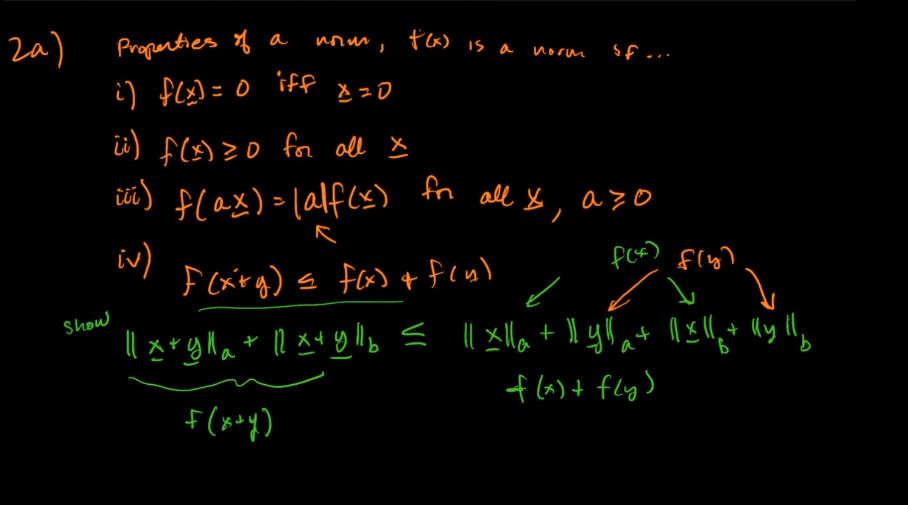 2a) Properties of a norm, f(x) is a norm if...
i) f(x) = 0 iff x = 0
ii) f(x) ≥ 0 for all x
iii) f(ax) = |a|f(x) for all x, a ≥ 0
iv) f(x+y) ≤ f(x) + f(y)
f(x) f(y)
show ‖x+y‖a + ‖x+y‖b ≤ ‖x‖a + ‖y‖a + ‖x‖b + ‖y‖b
f(x) + f(y)
f(x+y)